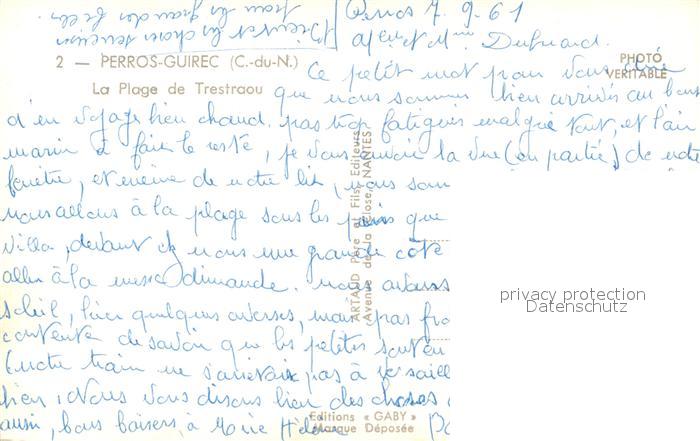 Perros 7.9.61
2 — PERROS-GUIREC (C.-du-N.)
La Plage de Trestraou
PHOTO VÉRITABLE
Ce petit mot pour vous dire
que nous sommes bien arrivés au bout
d'un voyage bien chaud. pas trop fatigués malgré tout, et l'air
marin a fait le reste, je vous envoie la vue (en partie) de notre
fenêtre, et même de notre lit, nous som
nous allons à la plage sous les pins que
villa, devant chez nous une grande côte
aller à la messe dimanche. nous avons
soleil, hier quelques averses, mais pas fro
contente de savoir que les petites sont en
(notre train ne s'arrêtait pas à Versaill
bien, Nous vous disons bien des choses
aussi, bons baisers à Marie Hélène
ARTAUD Père et Fils, Editeurs
Avenue de la Close, NANTES
Editions « GABY »
Marque Déposée
privacy protection
Datenschutz